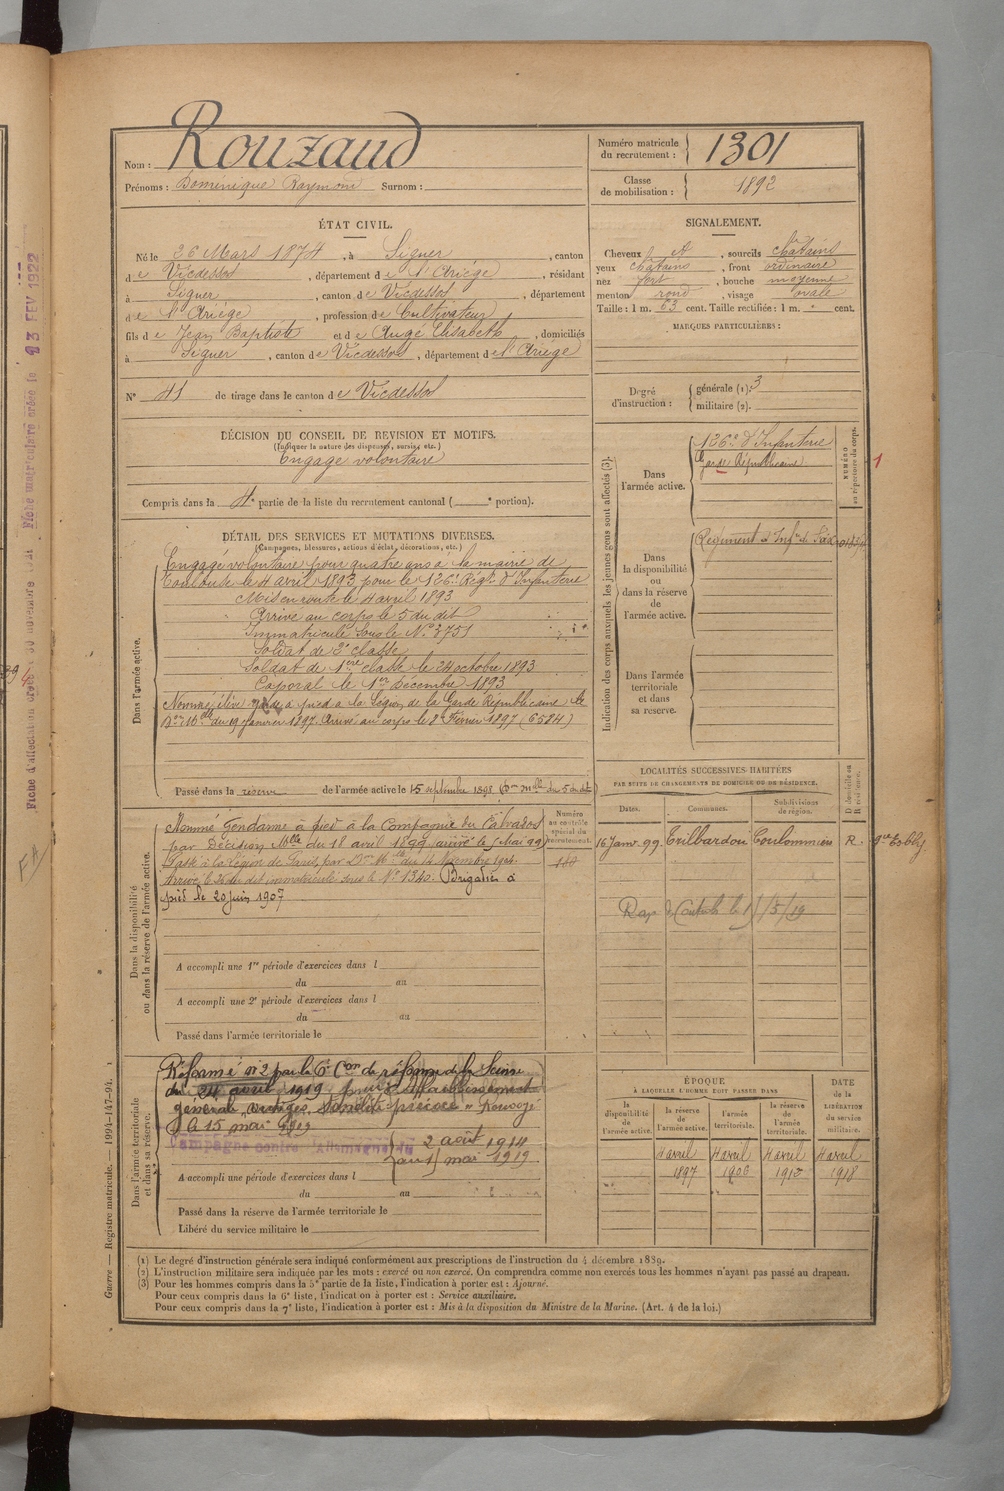 Nom : Rouzaud
Prénoms : Dominique Raymond Surnom :
Numéro matricule du recrutement : 1301
Classe de mobilisation : 1892
ÉTAT CIVIL.
Né le 26 Mars 1874, à Siguer, canton
de Vicdessos, département de l'Ariège, résidant
à Siguer, canton de Vicdessos, département
de l'Ariège, profession de Cultivateur
fils de Jean Baptiste et de Augé Elisabeth, domiciliés
à Siguer, canton de Vicdessos, département de l'Ariège
N° 41 de tirage dans le canton de Vicdessos
SIGNALEMENT.
Cheveux et, sourcils châtains
yeux châtains, front ordinaire
nez fort, bouche moyenne
menton rond, visage ovale
Taille : 1 m. 63 cent. Taille rectifiée : 1 m. cent.
MARQUES PARTICULIÈRES :
Degré d'instruction : générale (1). 3
militaire (2).
DÉCISION DU CONSEIL DE REVISION ET MOTIFS.
(Indiquer la nature des dispenses, sursis, etc.)
Engagé volontaire
Compris dans la 4e partie de la liste du recrutement cantonal ( e portion).
DÉTAIL DES SERVICES ET MUTATIONS DIVERSES.
(Campagnes, blessures, actions d'éclat, décorations, etc.)
Dans l'armée active.
Engagé volontaire pour quatre ans à la mairie de
Toulouse le 4 avril 1893 pour le 126e Régt d'Infanterie
Mis en route le 4 avril 1893
Arrivé au corps le 5 du dit
Immatriculé sous le N° 3751
Soldat de 2e classe
Soldat de 1ère classe le 24 octobre 1893
Caporal le 1er Décembre 1893
Nommé élève garde à pied à la Légion de la Garde Républicaine le
Don Mlle du 19 janvier 1897. Arrivé au corps le 8 Février 1897 (6584)
Passé dans la réserve de l'armée active le 15 septembre 1898 (Don Mlle du 5 du dit)
Indication des corps auxquels les jeunes gens sont affectés (3).
Dans l'armée active.
126e d'Infanterie
Garde Républicaine
NUMÉRO au répertoire du corps.
1
Dans la disponibilité ou dans la réserve de l'armée active.
Dans l'armée territoriale et dans sa réserve.
Dans la disponibilité ou dans la réserve de l'armée active.
Nommé Gendarme à pied à la Compagnie du Calvados
par Décision Mlle du 18 avril 1899 (arrivé le 5 Mai 99)
Passé à la légion de Paris, par Don Mlle du 14 Novembre 1904.
Arrivé le 26 du dit immatriculé sous le N° 1340. Brigadier à
pied le 20 juin 1907
Numéro au contrôle spécial du recrutement.
A accompli une 1re période d'exercices dans l
du au
A accompli une 2e période d'exercices dans l
du au
Passé dans l'armée territoriale le
LOCALITÉS SUCCESSIVES HABITÉES
PAR SUITE DE CHANGEMENTS DE DOMICILE OU DE RÉSIDENCE.
Dates. Communes. Subdivisions de région. D domicile ou R résidence.
16 Janv. 99 Trilbardou Coulommiers R.
Dans l'armée territoriale et dans sa réserve.
Réformé n° 2 par la 6e Con de réforme de la Seine
du 24 avril 1919 pour
générale, vertiges, sénilité précoce
le 15 mai 1919
Campagne contre l'Allemagne du 2 août 1914
au mai 1919
A accompli une période d'exercices dans l
du au
Passé dans la réserve de l'armée territoriale le
Libéré du service militaire le
ÉPOQUE
À LAQUELLE L'HOMME DOIT PASSER DANS
la disponibilité de l'armée active. la réserve de l'armée active. l'armée territoriale. la réserve de l'armée territoriale.
DATE de la LIBÉRATION du service militaire.
4 avril 1897 4 avril 1906 4 avril 1912 4 avril 1918
(1) Le degré d'instruction générale sera indiqué conformément aux prescriptions de l'instruction du 4 décembre 1889.
(2) L'instruction militaire sera indiquée par les mots : exercé ou non exercé. On comprendra comme non exercés tous les hommes n'ayant pas passé au drapeau.
(3) Pour les hommes compris dans la 5e partie de la liste, l'indication à porter est : Ajourné.
Pour ceux compris dans la 6e liste, l'indication à porter est : Service auxiliaire.
Pour ceux compris dans la 7e liste, l'indication à porter est : Mis à la disposition du Ministre de la Marine. (Art. 4 de la loi.)
Guerre — Registre matricule. — 1994-147-94.
Fiche matriculaire créée le 23 FEV 1922